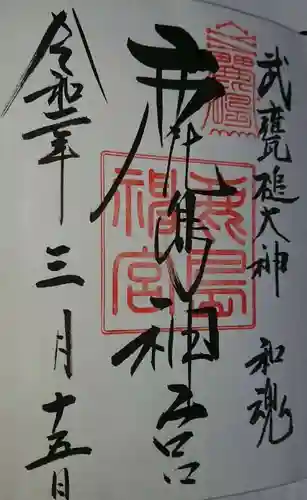 武甕槌大神 和魂
鹿島神宮
令和二年三月十五日
鹿島
神宮